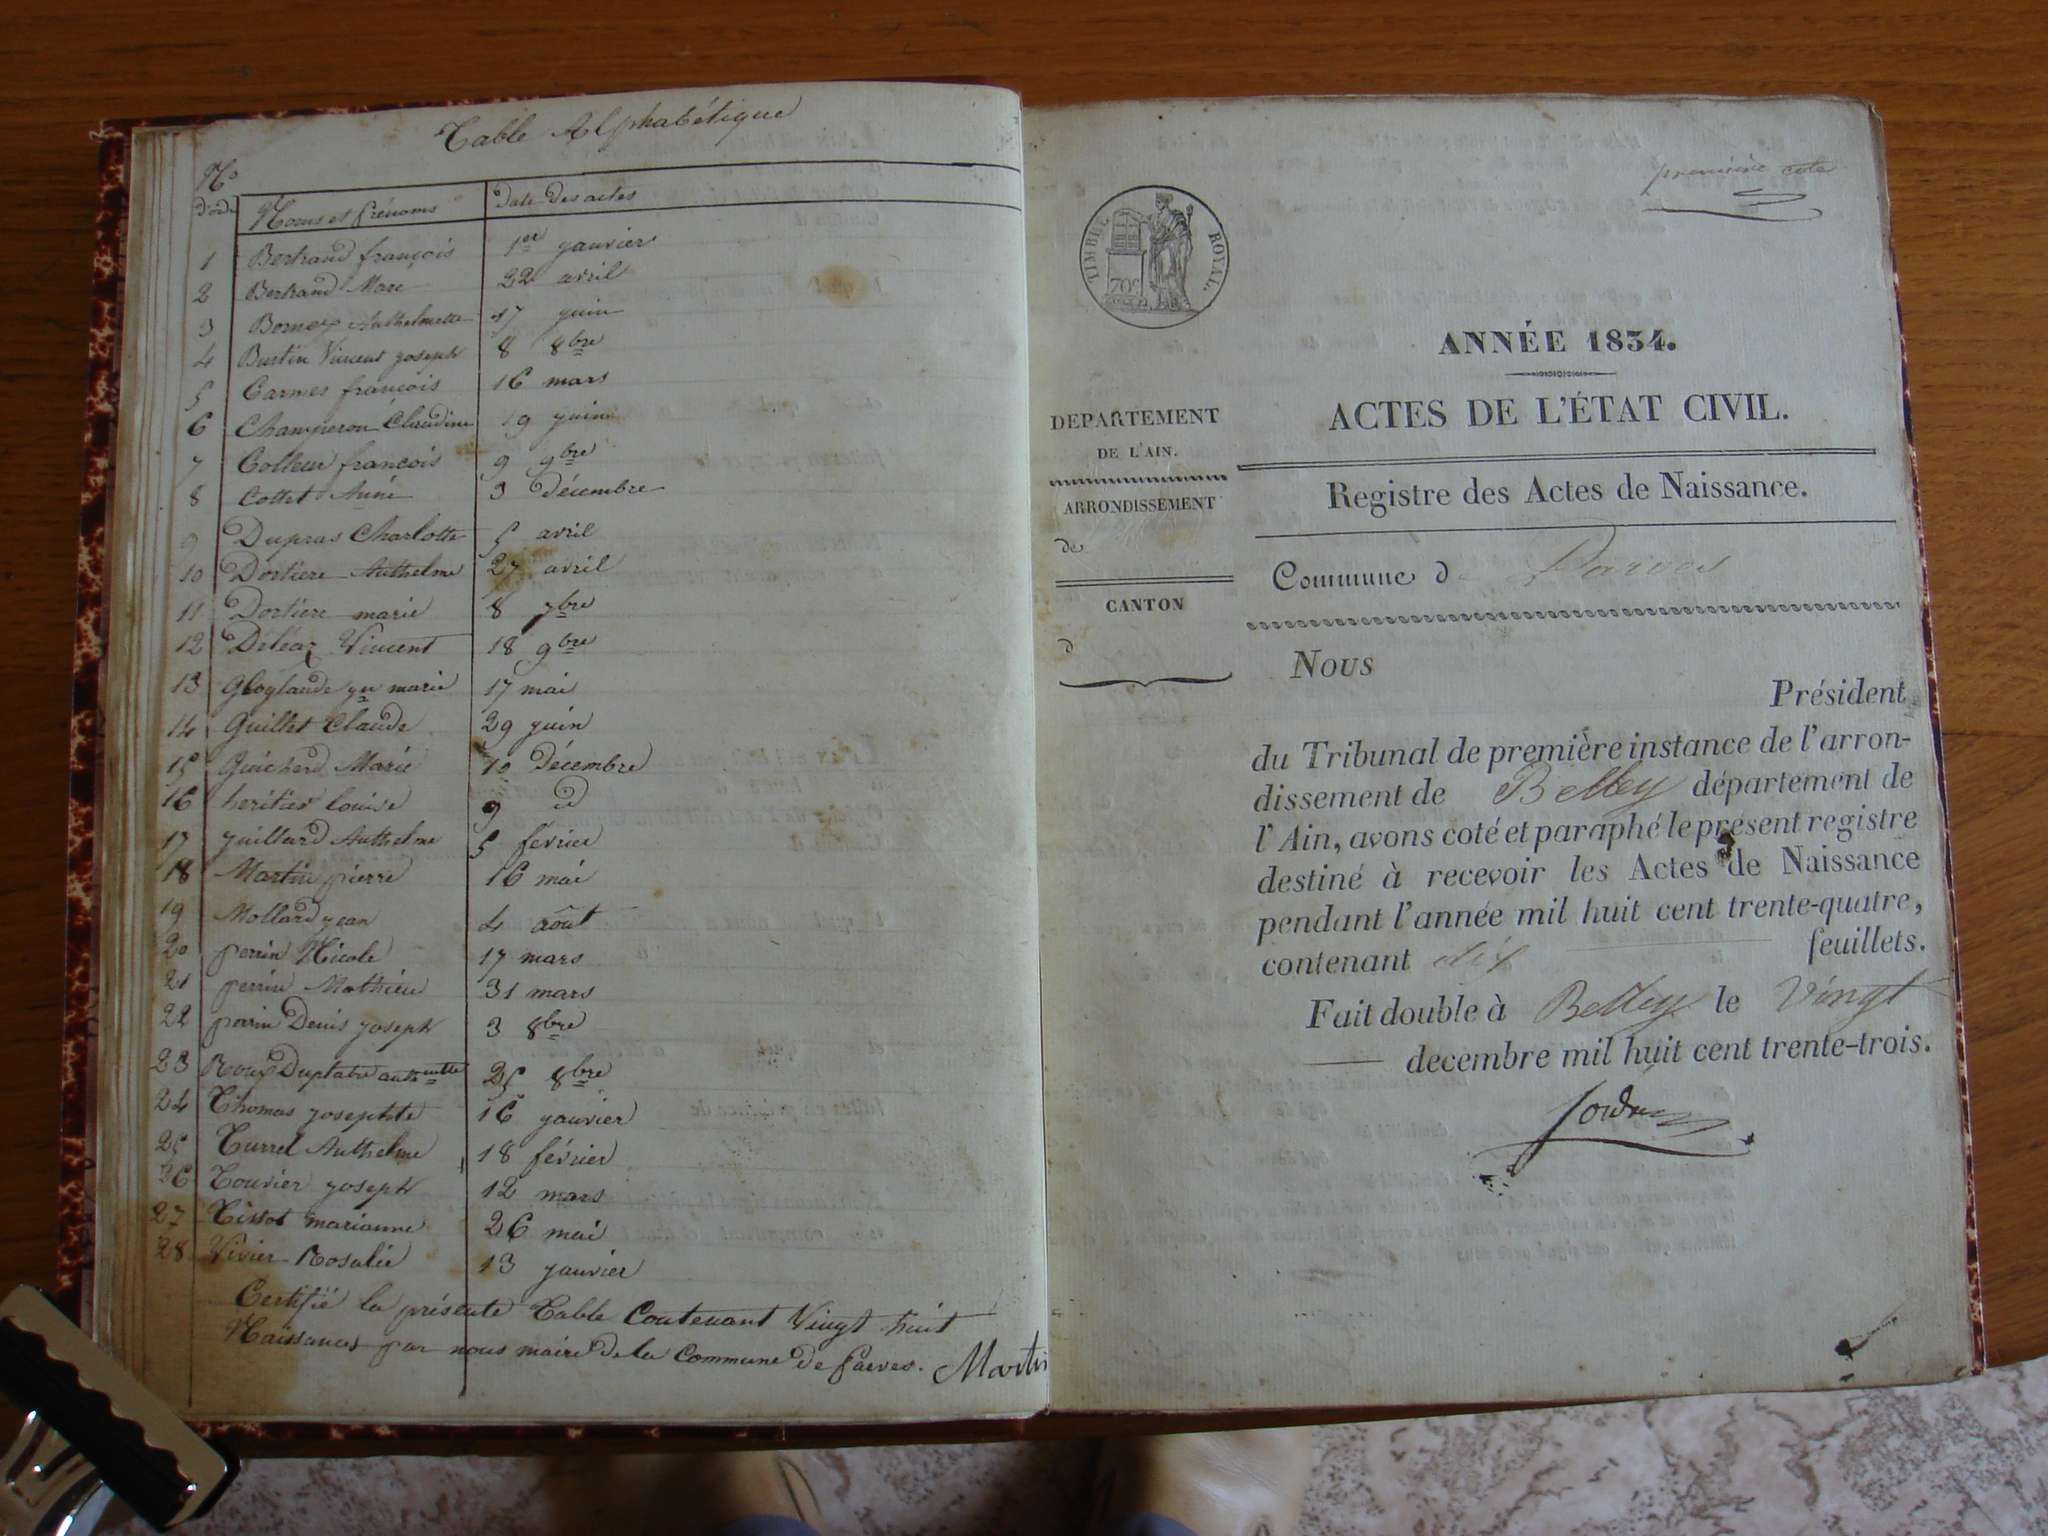 Table Alphabétique
No
d'ordre Noms et prénoms Date des actes
1 Bertrand françois 1er janvier
2 Bertrand Marc 22 avril
3 Anthelmette 17 juin
4 Burtin Vincent joseph 8 8bre
5 Carmes françois 16 mars
6 Champeron Claudine 19 juin
7 françois 9 9bre
8 Cottet Anne 3 décembre
9 Dupras Charlotte 5 avril
10 Dortiere Anthelme 27 avril
11 Dortiere marie 8 7bre
12 Déléaz Vincent 18 9bre
13 marie 17 mai
14 Guillet Claude 29 juin
15 Guicherd Marie 10 décembre
16 heritier louise 9 d
17 juillard Anthelme 5 février
18 Martin pierre 16 mai
19 Mollard jean 4 août
20 perrin Nicole 17 mars
21 perrin Mathieu 31 mars
22 parin Denis joseph 3 8bre
23 Roux Duplatre 25 8bre
24 Thomas josephte 16 janvier
25 Turrel Anthelme 18 février
26 Touvier joseph 12 mars
27 Tissot marianne 26 mai
28 Vivier Rosalie 13 janvier
Certifié la présente Table Contenant Vingt huit
Naissances par nous maire de la Commune de parves. Martin
première cote
TIMBRE ROYAL.
70c
ANNÉE 1834.
ACTES DE L'ÉTAT CIVIL.
DEPARTEMENT
DE L'AIN.
ARRONDISSEMENT
de
CANTON
d
Registre des Actes de Naissance.
Commune d Parves
Nous
Président
du Tribunal de première instance de l'arron-
dissement de Belley département de
l'Ain, avons coté et paraphé le présent registre
destiné à recevoir les Actes de Naissance
pendant l'année mil huit cent trente-quatre,
contenant dix feuillets.
Fait double à Belley le Vingt
decembre mil huit cent trente-trois.